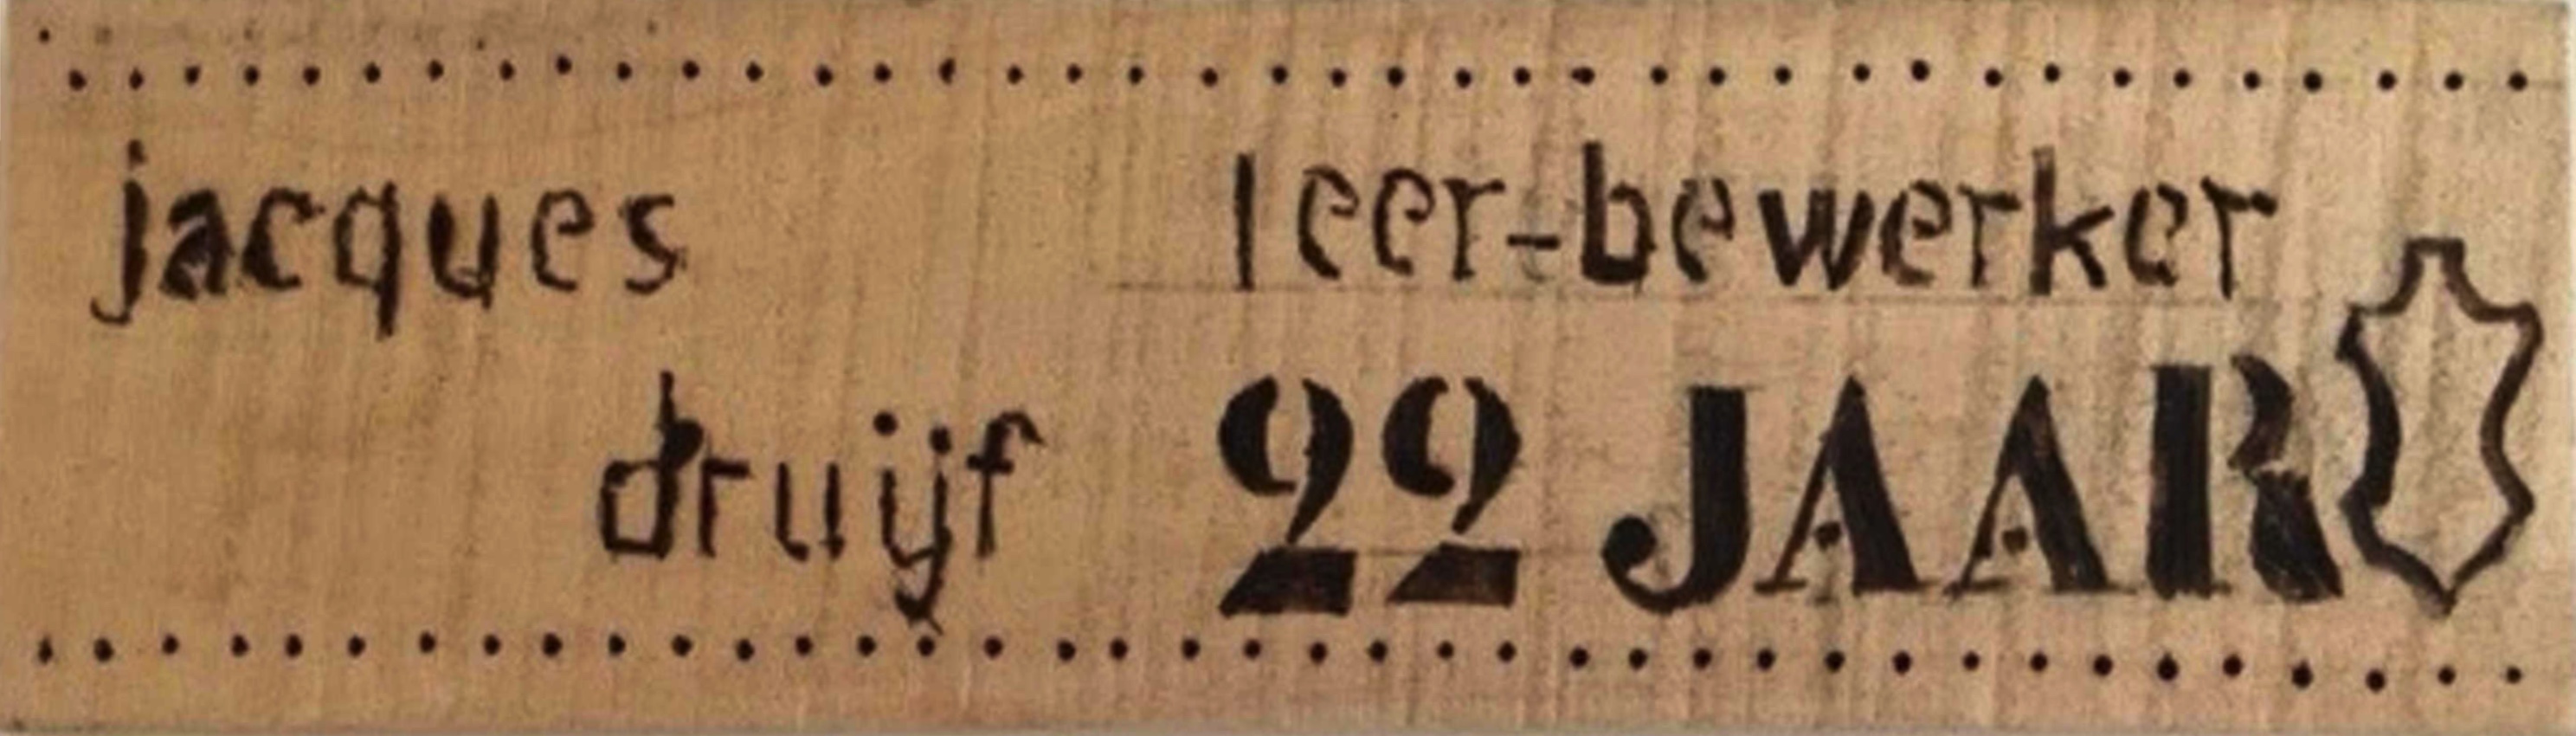 jacques leer-bewerker
druijf 22 JAAR